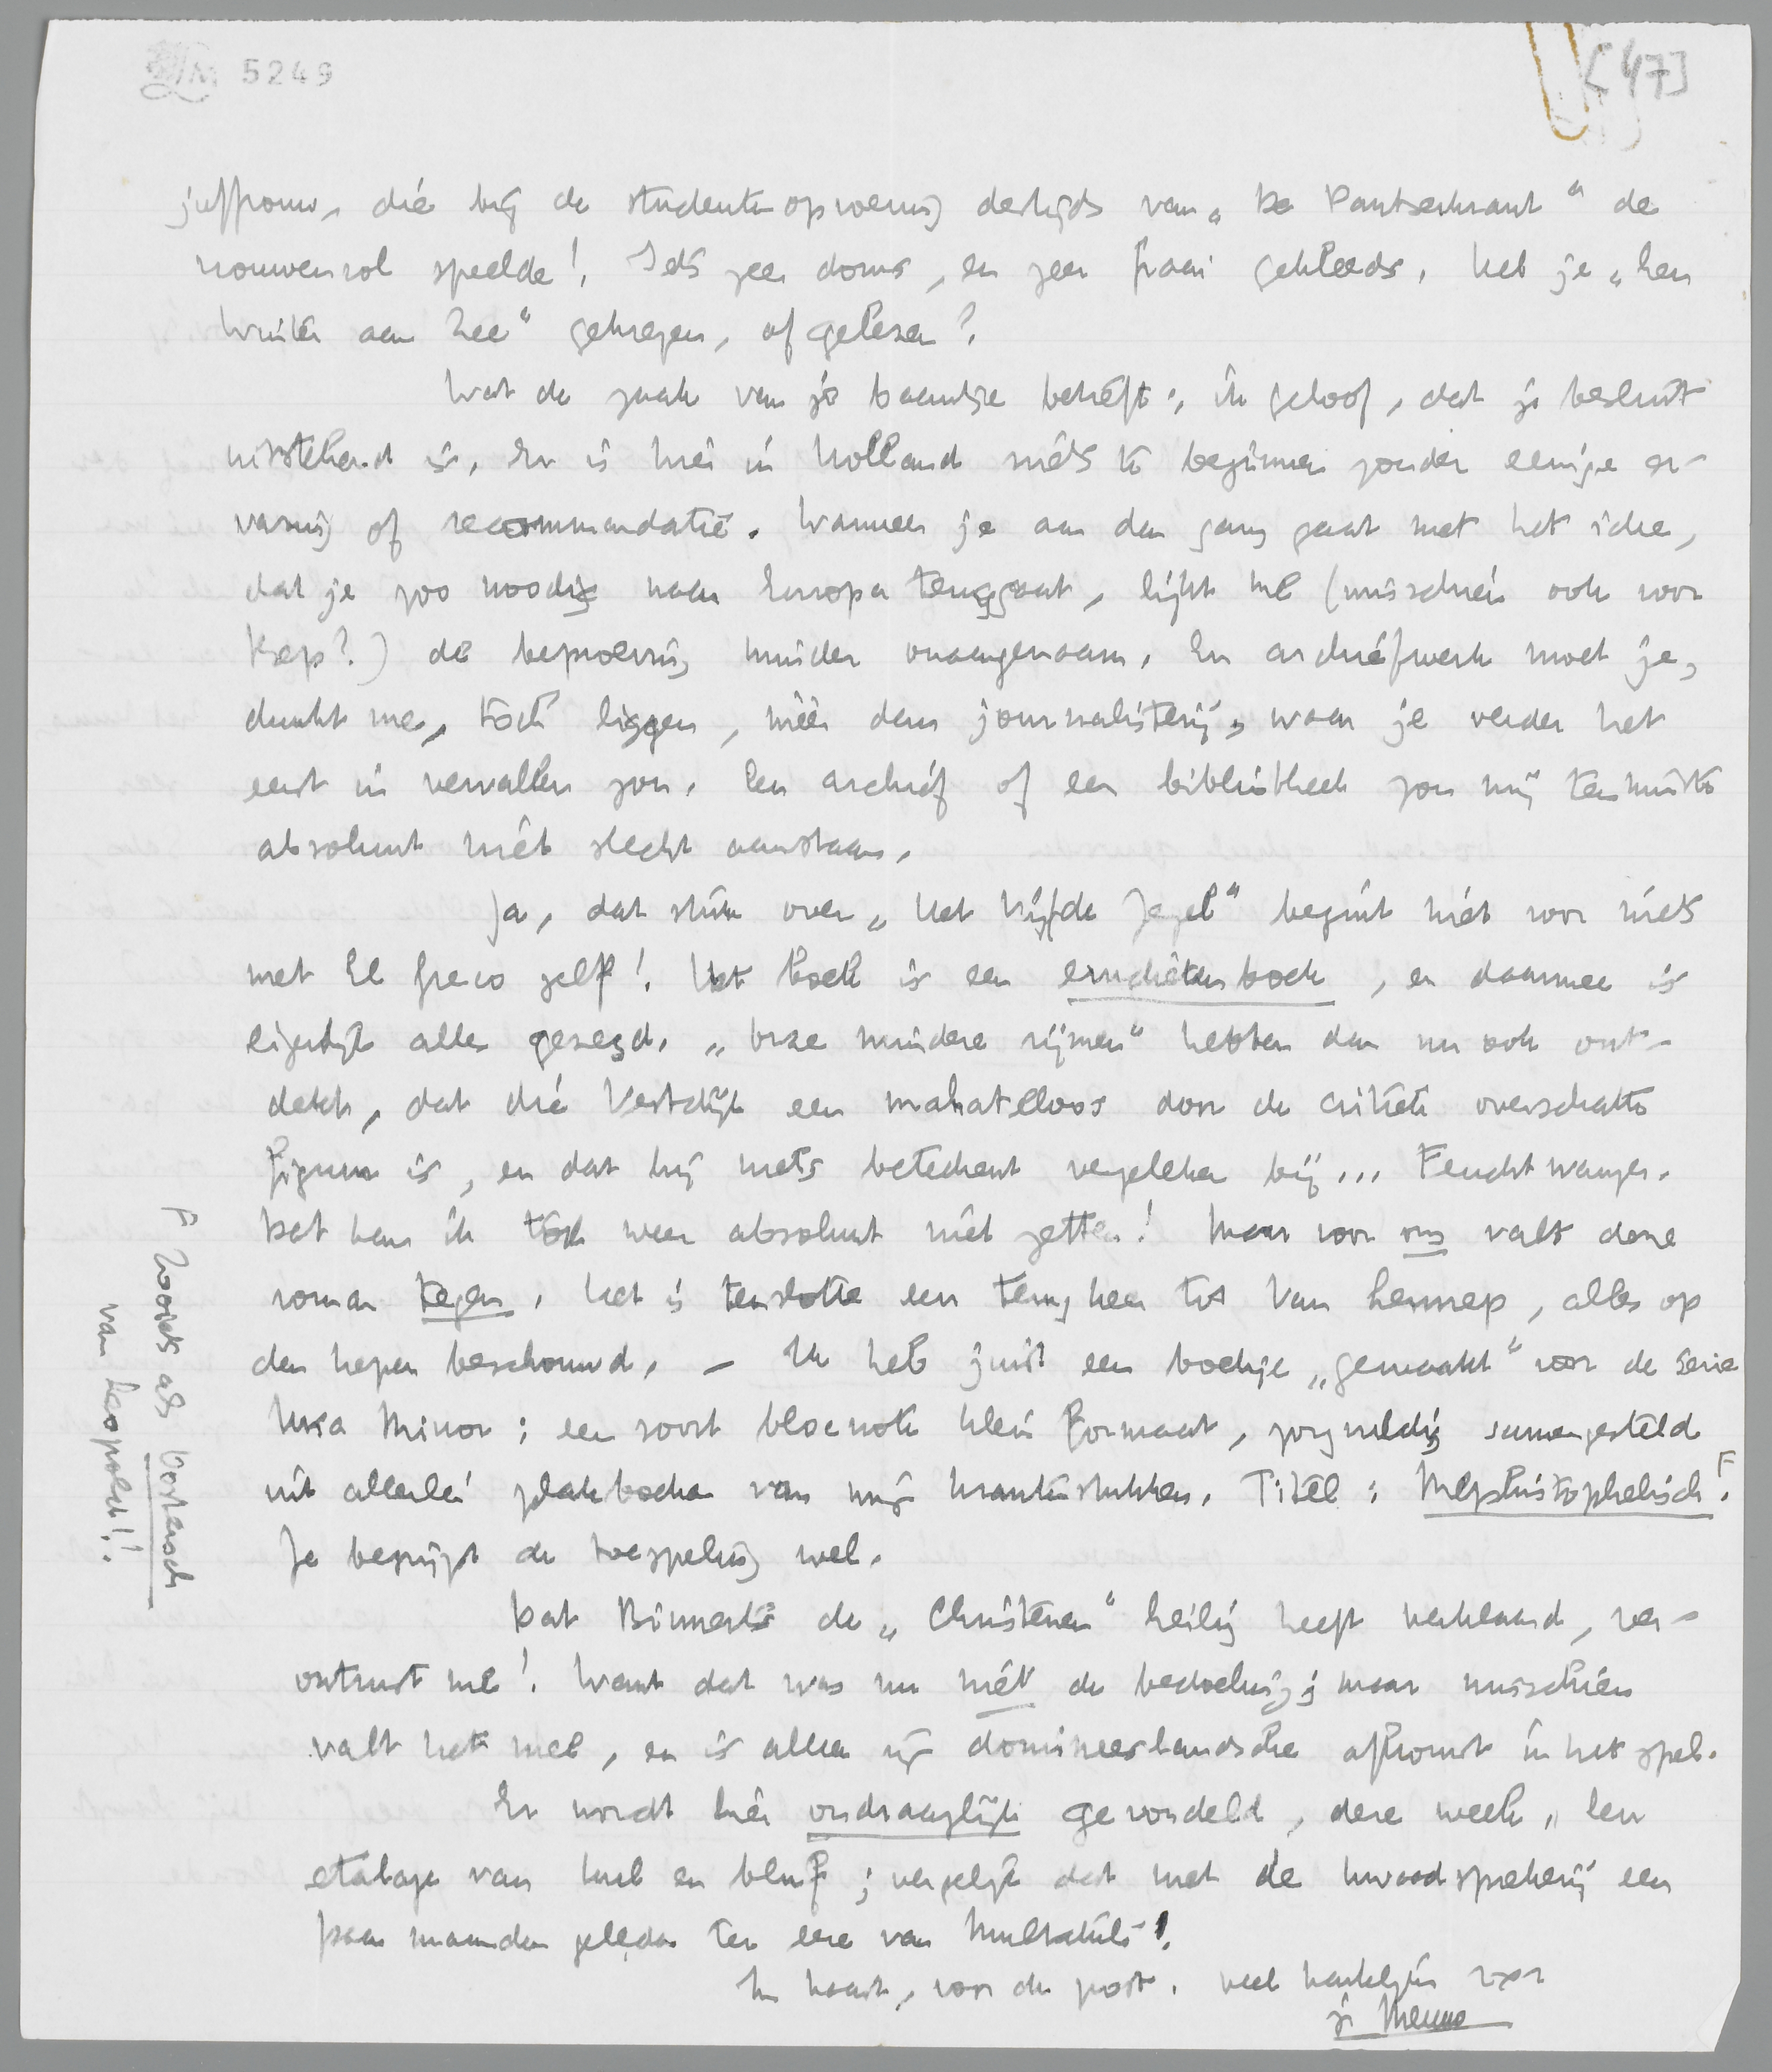 LM 5249
[47]
juffrouw, die bij de studentenopvoering destijds van „De Pantserkrant" de
vrouwenrol speelde! Iets zeer doms, en zeer fraai gekleeds. Heb je „Een
Winter aan Zee" gekregen, of gelezen?
Wat de zaak van je baantje betreft: ik geloof, dat je besluit
uitstekend is. Er is hier in Holland niets te beginnen zonder eenige er-
varing of recommandatie. Wanneer je aan den gang gaat met het idee,
dat je zoo noodig naar Europa teruggaat, lijkt me (misschien ook voor
Bep?) de beproeving minder onaangenaam. En archiefwerk moet je,
dunkt me, toch liggen, méér dan journalisterij, waar je verder het
eerst in vervallen zou. Een archief of een bibliotheek zou mij tenminste
absoluut niet slecht aanstaan.
Ja, dat stuk over „Het Vijfde Zegel" begint niet voor niets
met El Greco zelf! Het boek is een eruditenboek, en daarmee is
eigenlijk alles gezegd. „Onze mindere rijmer" hebben dan nu ook ont-
dekt, dat die Vestdijk een mateloos door de critiek overschatte
figuur is, en dat hij niets beteekent vergeleken bij... Feuchtwanger.
Dat kan ik tòch weer absoluut niet zetten! Maar voor ons valt deze
roman tegen. Het is tenslotte een terugkeer tot Van Lennep, alles op
den keper beschouwd. – Ik heb juist een boekje „gemaakt" voor de serie
Ursa Minor: een soort blocnote klein formaat, zorgvuldig samengesteld
uit allerlei plakboeken van mijn krantenstukken. Titel: Mephistophelisch F.
Je begrijpt de toespeling wel.
F Zooiets als Oostersch
van Leopold!!
Dat Binnerts de „Christenen" heilig heeft verklaard, ver-
ontrust me! Want dat was nu niet de bedoeling; maar misschien
valt het mee, en is alleen zijn domineeslandsche afkomst in het spel.
Er wordt hier ondraaglijk gevondeld, deze week. Een
etalage van lust en bluf; vergelijk dat met de kwaadsprekerij een
paar maanden geleden ter eere van Multatuli!
In haast, voor de post. Veel hartelijks voor
je Menno